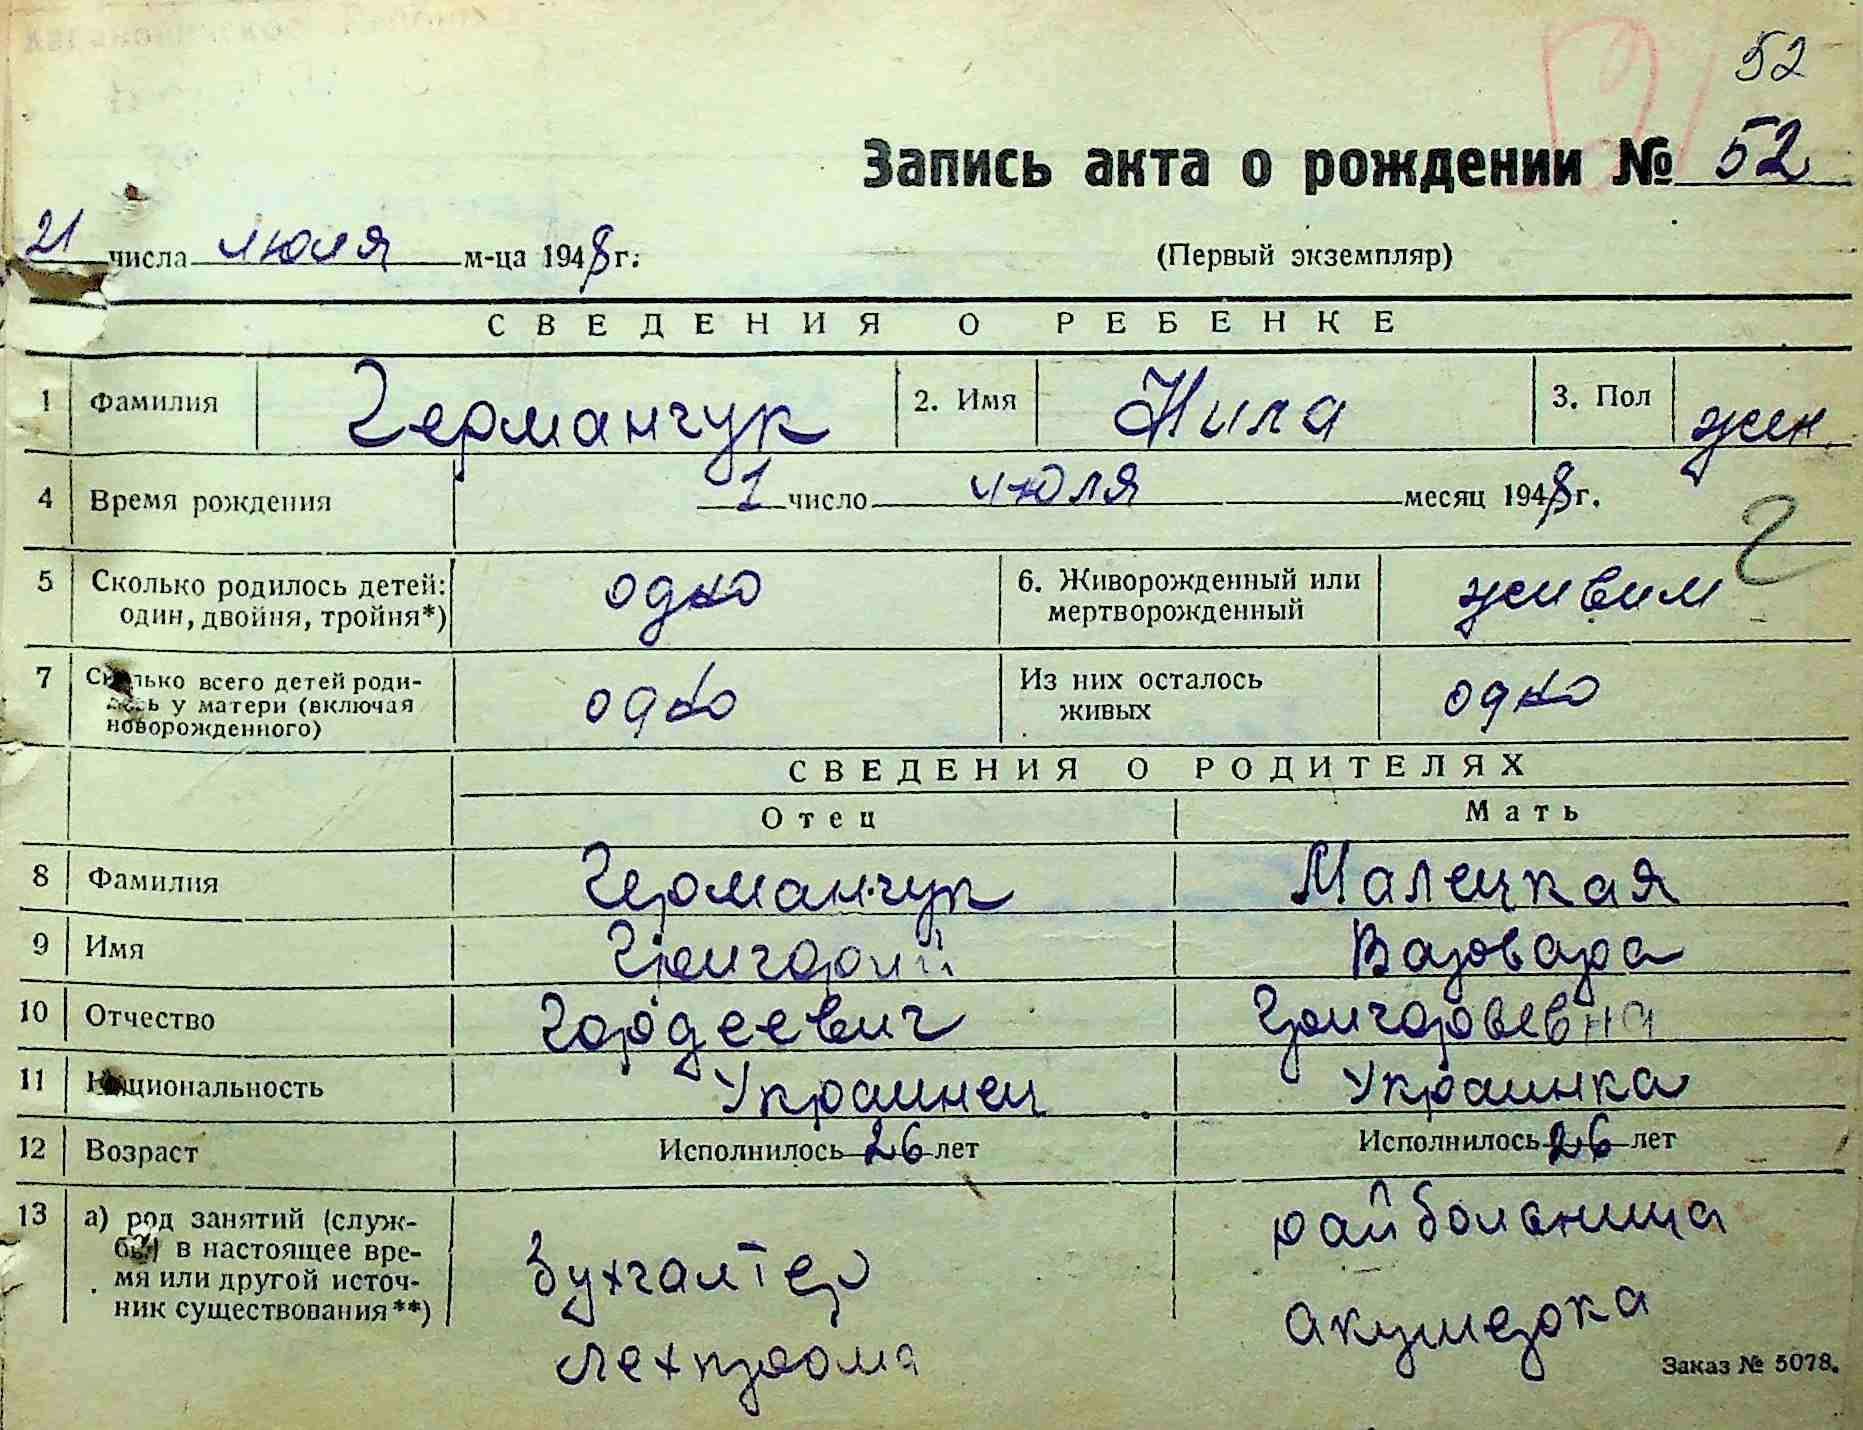 52
Запись акта о рождении № 52
21 числа июля м-ца 1948 г.
(Первый экземпляр)
СВЕДЕНИЯ О РЕБЕНКЕ
1 Фамилия Германчук 2. Имя Нила 3. Пол жен.
4 Время рождения 1 число июля месяц 1948 г.
5 Сколько родилось детей: один, двойня, тройня*) одно 6. Живорожденный или мертворожденный живим
7 Сколько всего детей родилось у матери (включая новорожденного) одно Из них осталось живых одно
СВЕДЕНИЯ О РОДИТЕЛЯХ
Отец Мать
8 Фамилия Германчук Малецкая
9 Имя Григорий Варвара
10 Отчество Гордеевич Григоровевна
11 Национальность Украинец Украинка
12 Возраст Исполнилось 26 лет Исполнилось 26 лет
13 а) род занятий (служ-
бы) в настоящее вре-
мя или другой источ-
ник существования**)
бухгалтер
райбольница
акушерка
Заказ № 5078.